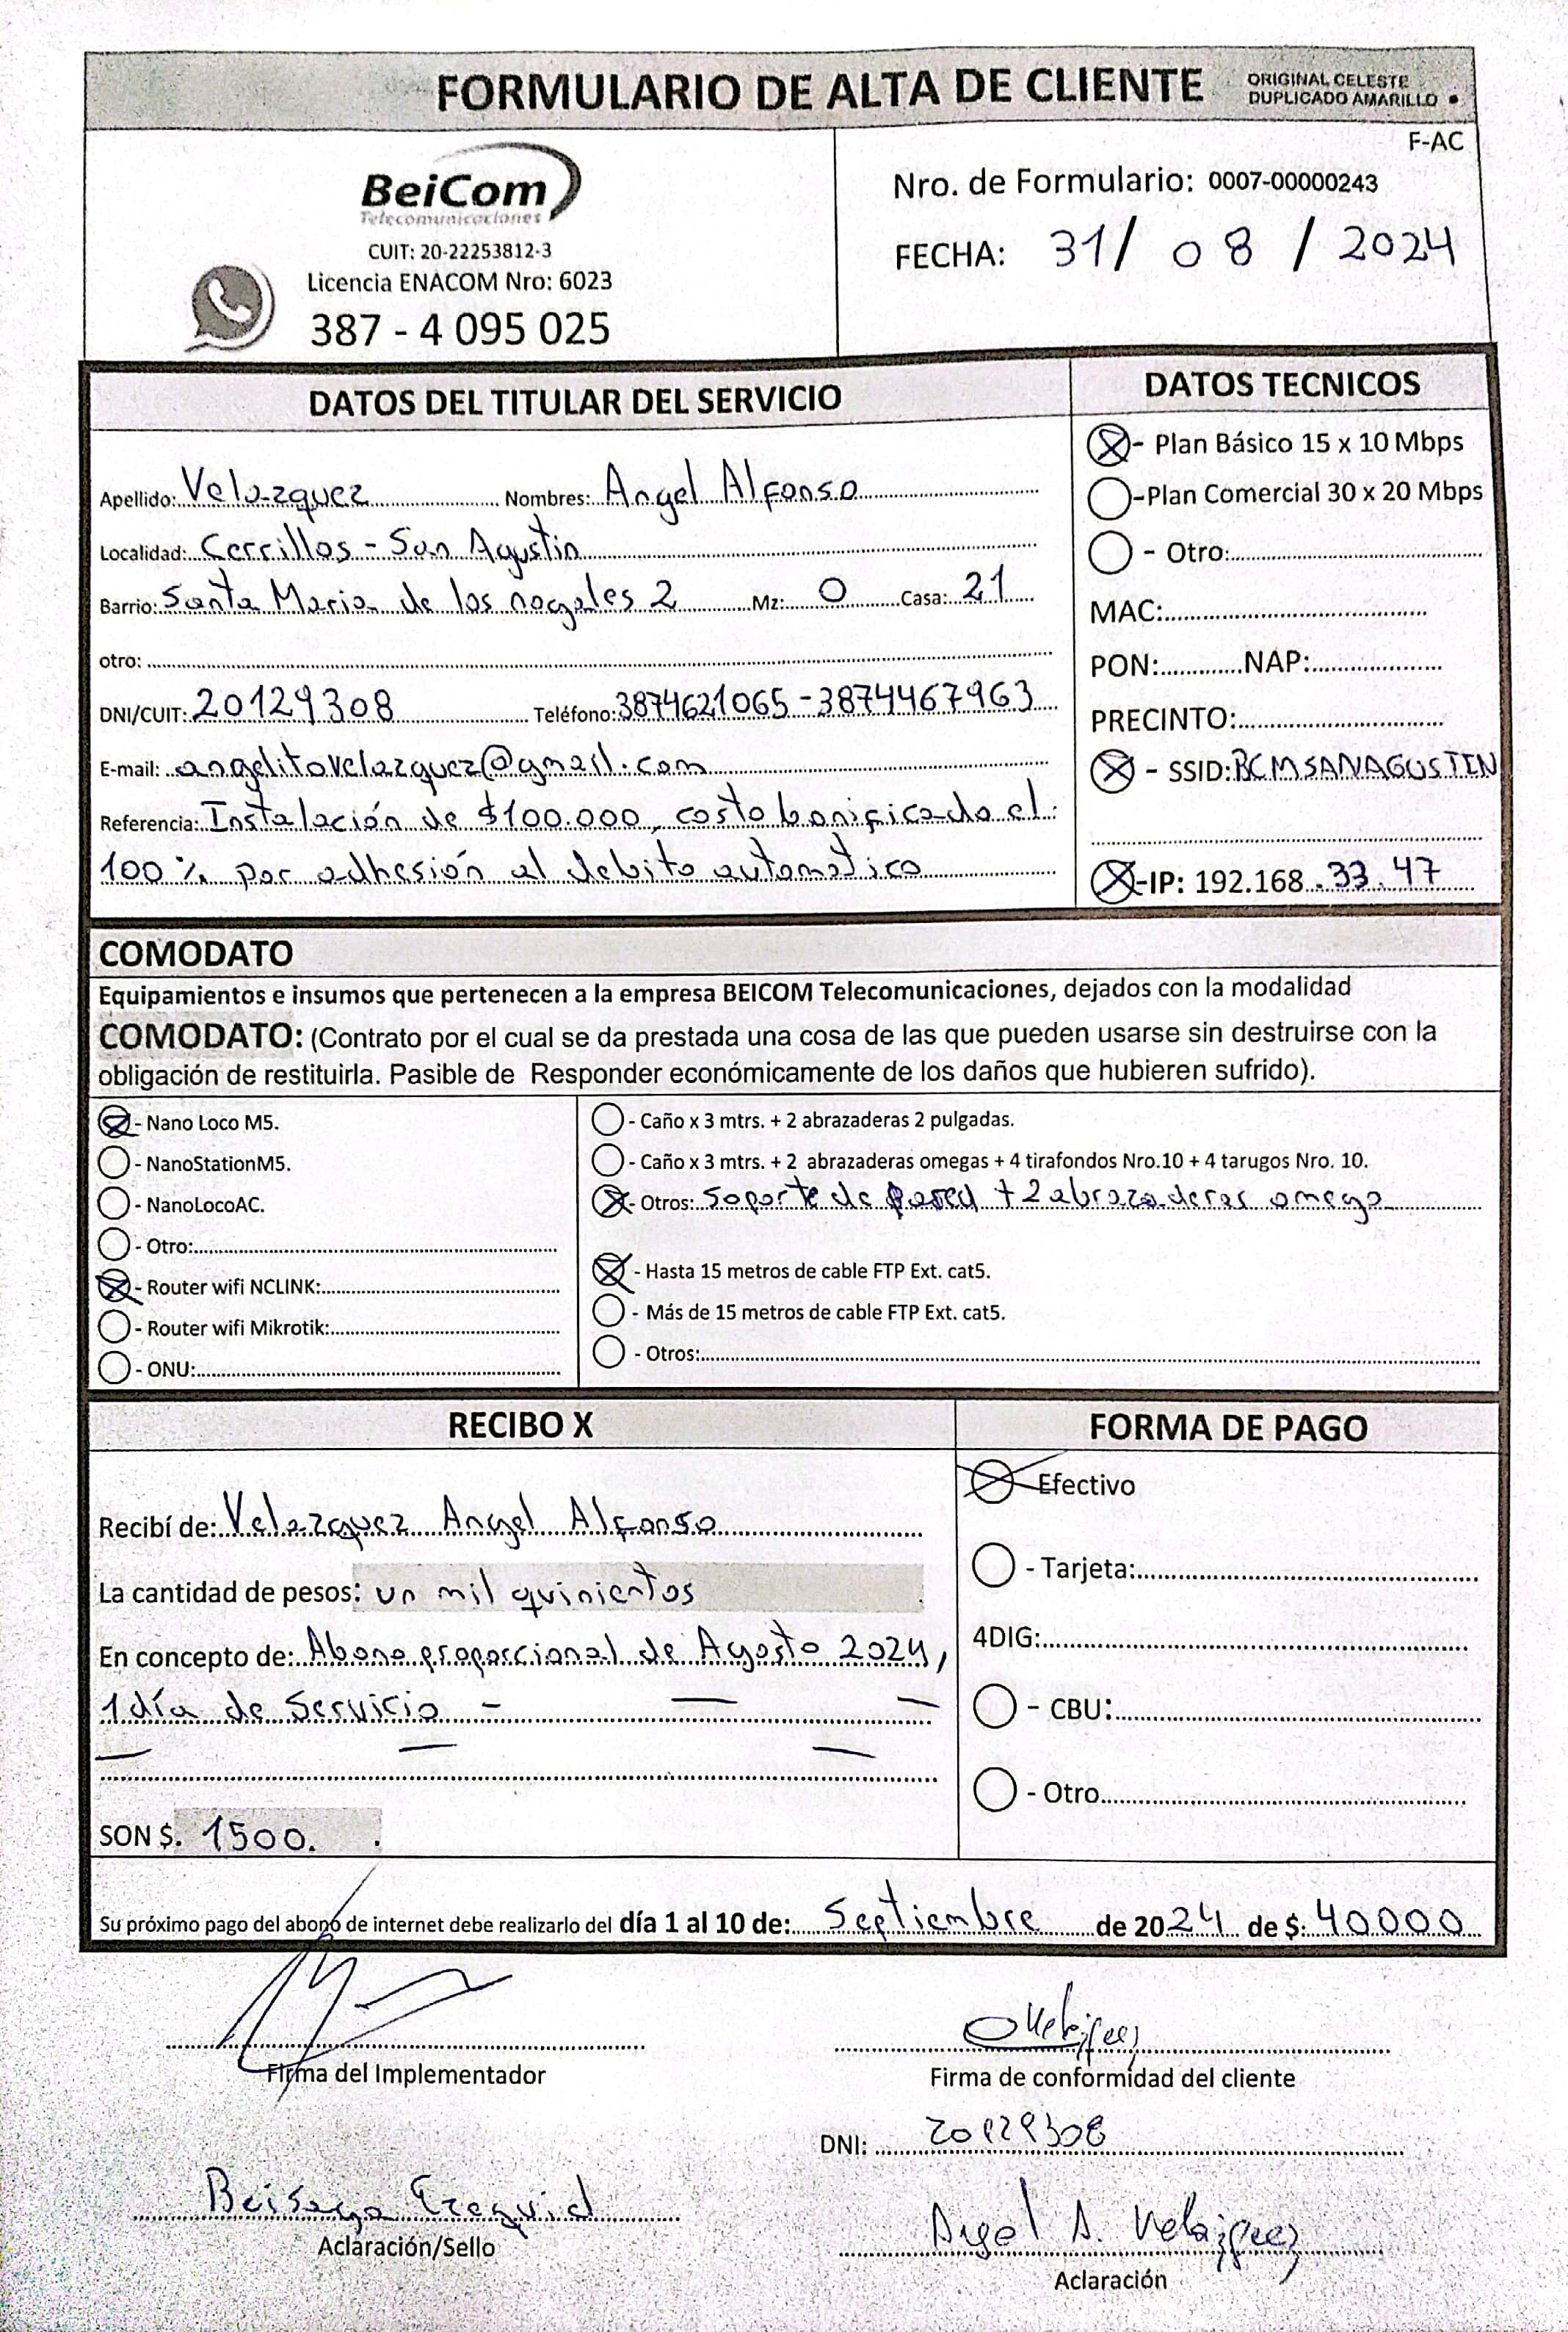 FORMULARIO DE ALTA DE CLIENTE
ORIGINAL CELESTE
DUPLICADO AMARILLO •
F-AC
BeiCom
Telecomunicaciones
CUIT: 20-22253812-3
Licencia ENACOM Nro: 6023
387 - 4 095 025
Nro. de Formulario: 0007-00000243
FECHA: 31/ 08 / 2024
DATOS DEL TITULAR DEL SERVICIO
Apellido: Velazquez Nombres: Angel Alfonso
Localidad: Cerrillos - San Agustin
Barrio: Santa Maria de los nogales 2 Mz: O Casa: 21
otro:
DNI/CUIT: 20129308 Teléfono: 3874621065 - 3874467963
E-mail: angelitovelazquez@gmail.com
Referencia: Instalación de $100.000, costo bonificado el
100 % por adhesión al debito automatico
DATOS TECNICOS
- Plan Básico 15 x 10 Mbps
-Plan Comercial 30 x 20 Mbps
- Otro:
MAC:
PON: NAP:
PRECINTO:
- SSID: BCMSANAGUSTIN
-IP: 192.168.33.47
COMODATO
Equipamientos e insumos que pertenecen a la empresa BEICOM Telecomunicaciones, dejados con la modalidad
COMODATO: (Contrato por el cual se da prestada una cosa de las que pueden usarse sin destruirse con la
obligación de restituirla. Pasible de Responder económicamente de los daños que hubieren sufrido).
- Nano Loco M5.
- NanoStationM5.
- NanoLocoAC.
- Otro:
- Router wifi NCLINK:
- Router wifi Mikrotik:
- ONU:
- Caño x 3 mtrs. + 2 abrazaderas 2 pulgadas.
- Caño x 3 mtrs. + 2 abrazaderas omegas + 4 tirafondos Nro.10 + 4 tarugos Nro. 10.
- Otros: Soporte de pared + 2 abrazaderas omega
- Hasta 15 metros de cable FTP Ext. cat5.
- Más de 15 metros de cable FTP Ext. cat5.
- Otros:
RECIBO X
Recibí de: Velazquez Angel Alfonso
La cantidad de pesos: un mil quinientos
En concepto de: Abono proporcional de Agosto 2024,
1 día de Servicio - — —
— — —
SON $. 1500.
FORMA DE PAGO
Efectivo
- Tarjeta:
4DIG:
- CBU:
- Otro
Su próximo pago del abono de internet debe realizarlo del día 1 al 10 de: Septiembre de 2024 de $: 40000
Firma del Implementador
Firma de conformidad del cliente
DNI: 20129308
Beisaga Ezequiel
Aclaración/Sello
Angel A. Velazquez
Aclaración